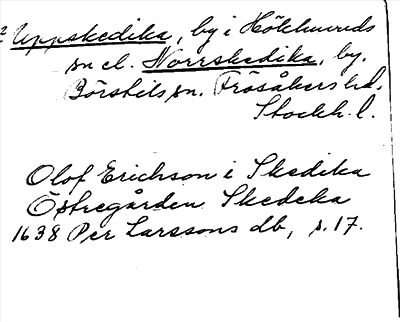 ? Uppskedika, by i Hökhuvuds
sn el. Norrskedika, by,
Börstils sn. Frösåkers hd.
Stockh. l.
Olof Erichson i Skedika
Östregården Skedeka
1638 Per Larssons db, s. 17.